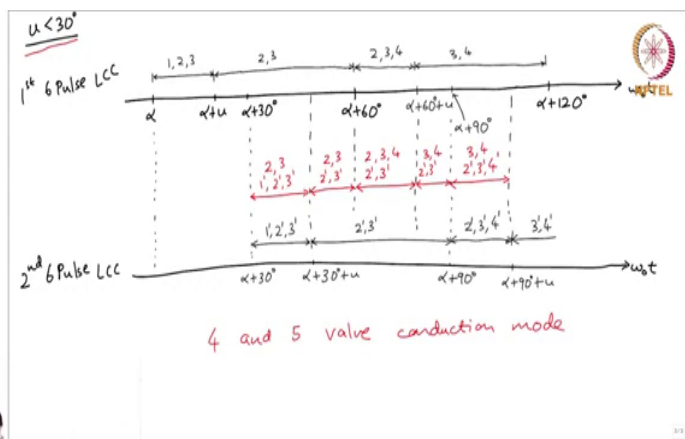 u < 30°
1st 6 Pulse LCC
1,2,3 2,3 2,3,4 3,4
α α+u α+30° α+60° α+60°+u α+90° α+120°
NPTEL
2,3 2,3 2,3,4 3,4 3,4
1',2',3' 2',3' 2',3' 2',3' 2',3',4'
1',2',3' 2',3' 2',3',4' 3',4'
2nd 6 Pulse LCC
ω₀t
α+30° α+30°+u α+90° α+90°+u
4 and 5 valve conduction mode